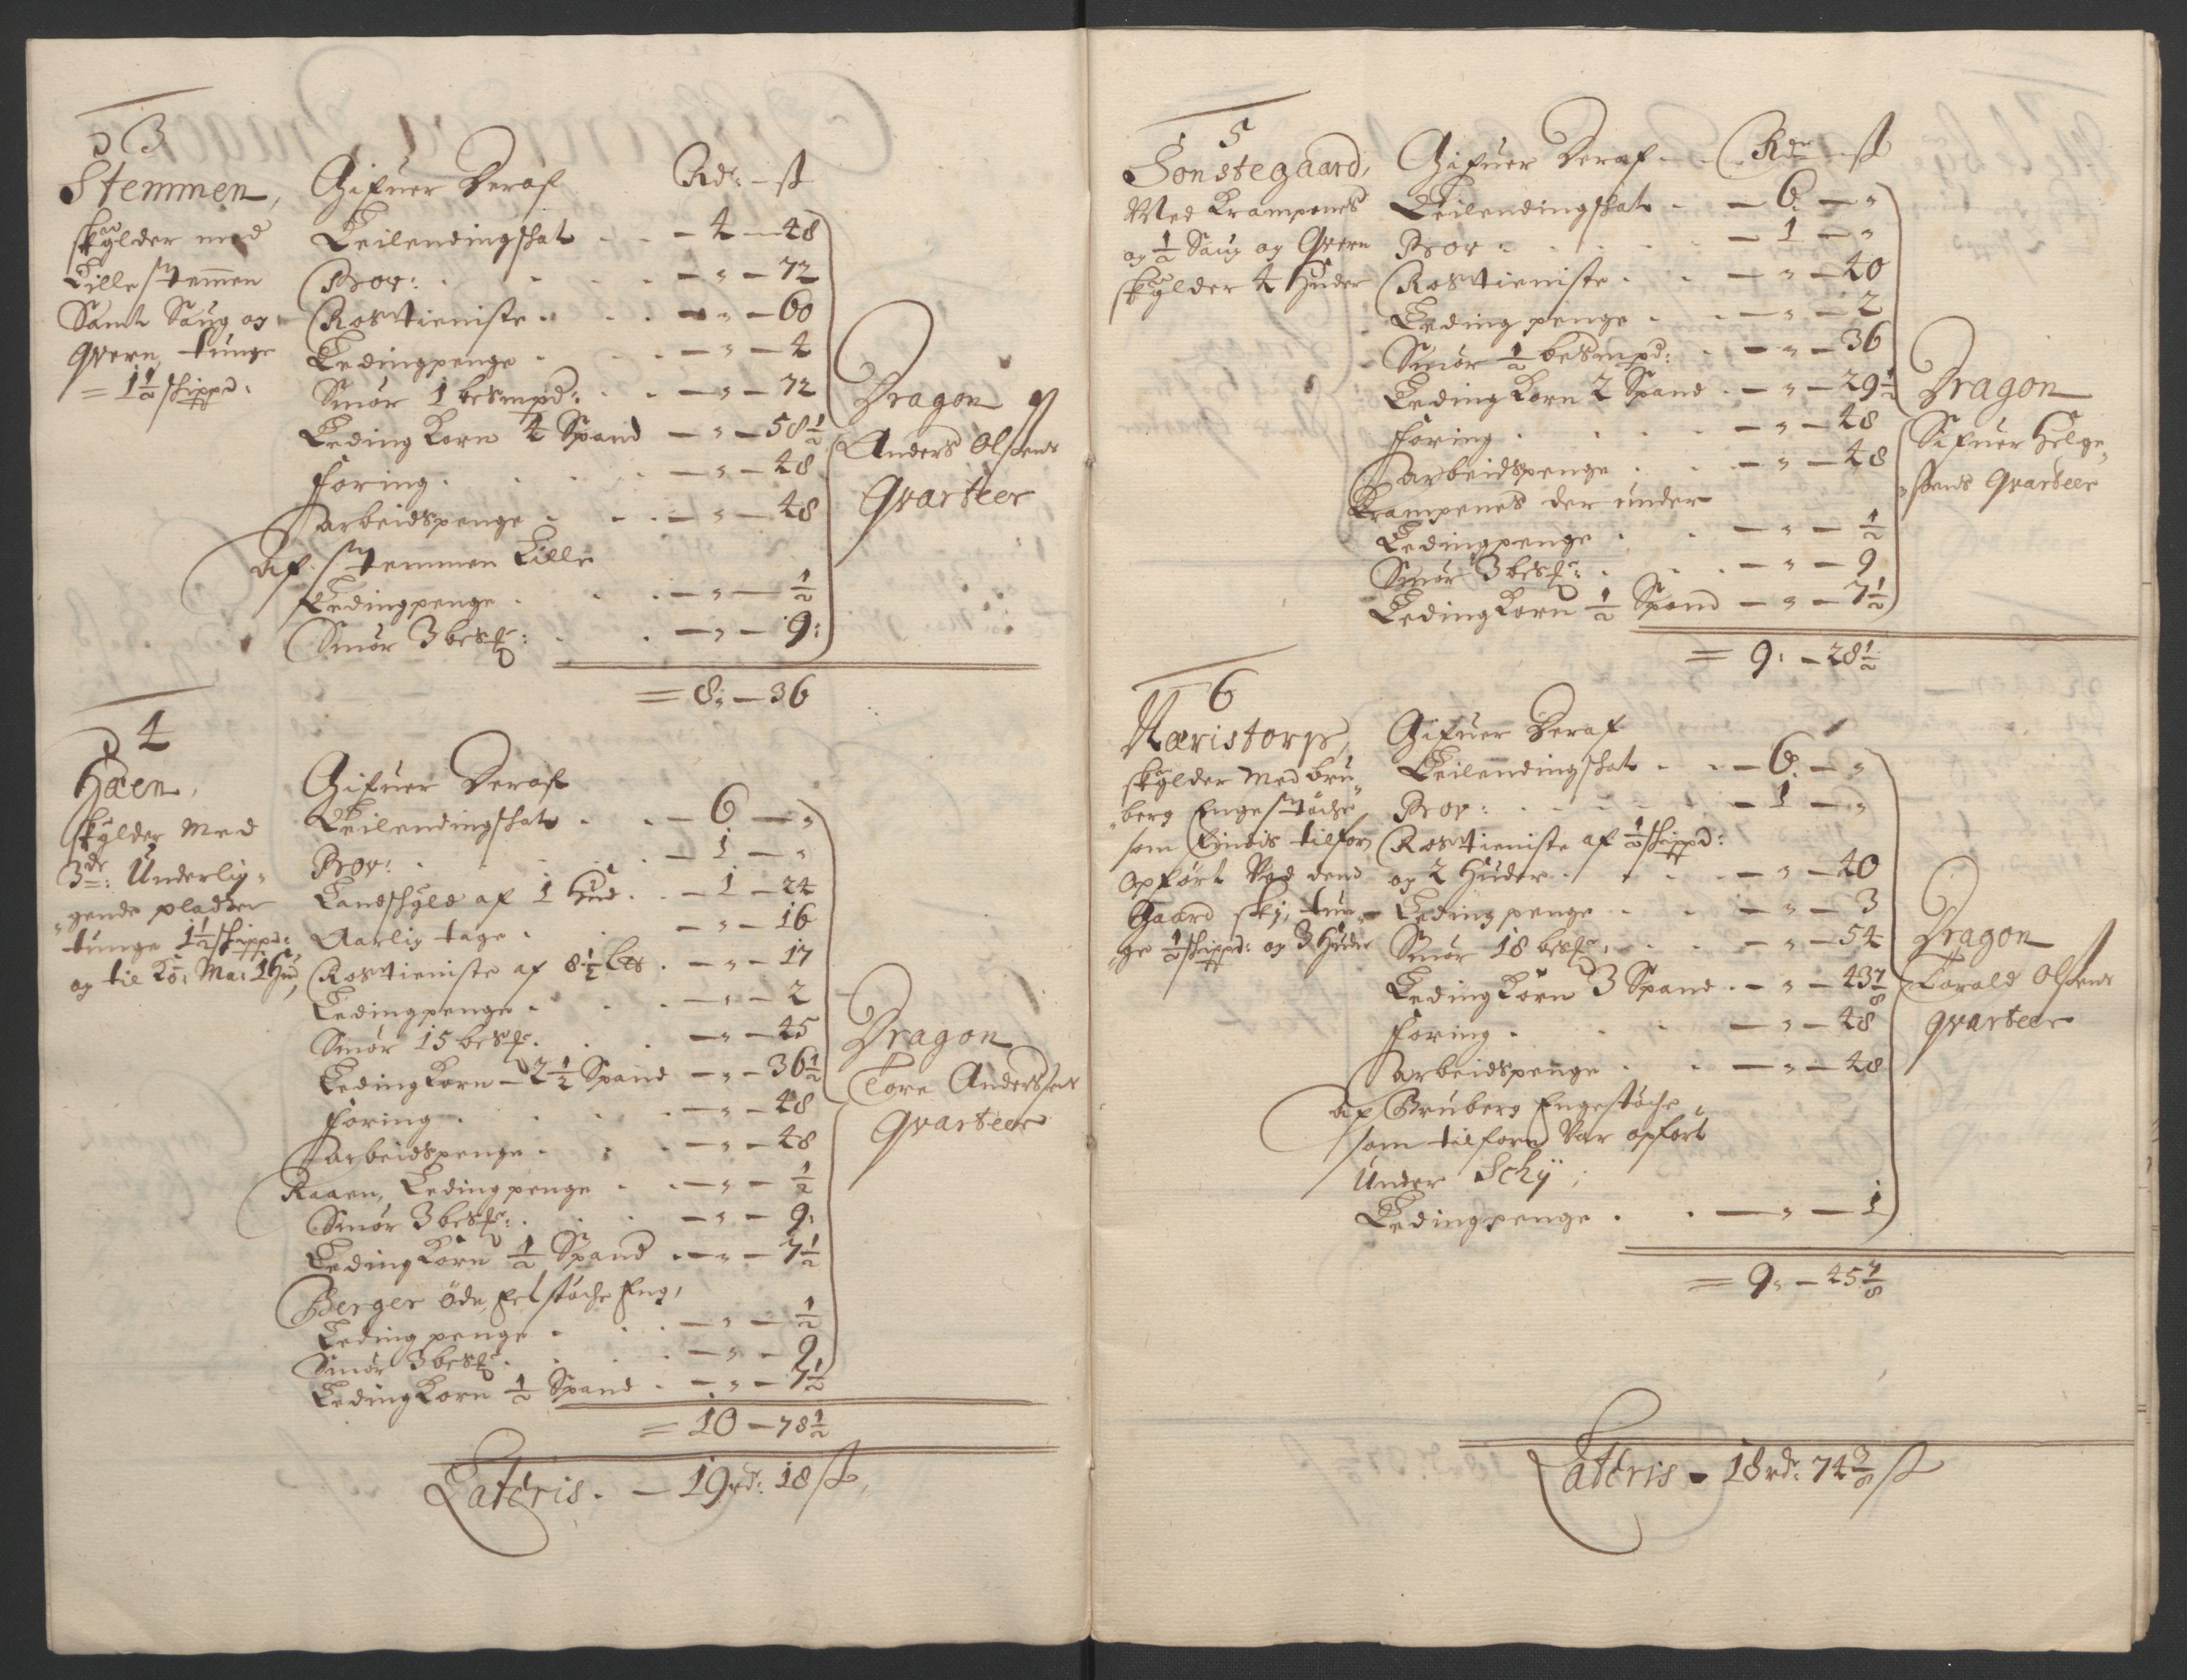 3
Stemmen,
skylder med
Lille stemen
Samt Saug og
Qvern, tunge
= 1½ skippd:
Gifuer Deraf Rdr: - ß
Leilendingskat - 4 - 48
Prov: - " - 72
Rostieniste - " - 60
Ledingpenge - " - 4
Smør 1 besmpd: - " - 72
Leding Korn 4 Spand - " - 58½
Foring - " - 48
arbeidspenge - " - 48
Af stemmen Lille
Ledingpenge - " - ½
Smør 3 besk: - " - 9:
Dragon
Anders Olsens
Qvarteer
= 8: - 36
4
Haaen,
skylder Med
3de: Underlig=
gende pladser
tunge 1½ skippd:
og til Ko: Ma: 1 Hud,
Gifuer Deraf
Leilendingskat - 6 - "
Prov: - 1 - "
Landskyld af 1 Hud - 1 - 24
Aarlig tage - " - 16
Rostieniste af 8½ Lts - " - 17
Ledingpenge - " - 2
Smør 15 besk: - " - 45
Leding Korn - 2½ Spand - " - 36½
Foring - " - 48
arbeidspenge - " - 48
Raaen, Ledingpenge - " - ½
Smør 3 besk: - " - 9:
Leding Korn ½ Spand - " - 7½
Berger øde, Et støche Eng,
Leding penge - " - ½
Smør 3 besk: - " - 9
Leding Korn ½ Spand - " - 7½
Dragon
Tore Anderssens
Qvarteer
= 10 - 78½
Lateris - 19 rd: 18 ß,
5
Tonstegaard,
Med Krampenes
og ½ Saug og Qvern
skylder 4 Huder
Gifuer Deraf - Rdr - ß
Leilendingskat - 6 - "
Prov - 1 - "
Rostieniste - " - 40
Leding penge - " - 2
Smør ½ besmpd: - " - 36
Leding Korn 2 Spand - " - 29½
Foring - " - 48
arbeidspenge - " - 48
Krampenes der under
Ledingpenge - " - ½
Smør 3 besk: - " - 9
Leding Korn ½ Spand - " - 7½
Dragon
Sifuer Helge=
sens Qvarteer
= 9: - 28½
6
Næristorp,
skylder Med bru=
berg Engestøche
som findis tilforn
Opført Ved dend
Gaard skj, tun=
ge ½ skippd: og 3 Huder
Gifuer Deraf
Leilendingskat - 6 - "
Prov: - 1 - "
Rostieniste af ½ skippd:
og 2 Huder - " - 40
Leding penge - " - 3
Smør 18 besk: - " - 54
Leding Korn 3 Spand - " - 43⅞
Foring - " - 48
arbeidspenge - " - 48
Af Bruberg Engestøche
som tilforn Var opført
Under Schÿ;
Ledingpenge - " - 1
Dragon
Torald Olsens
qvarteer
= 9: - 45⅞
Lateris - 18 rd: 74⅜ ß